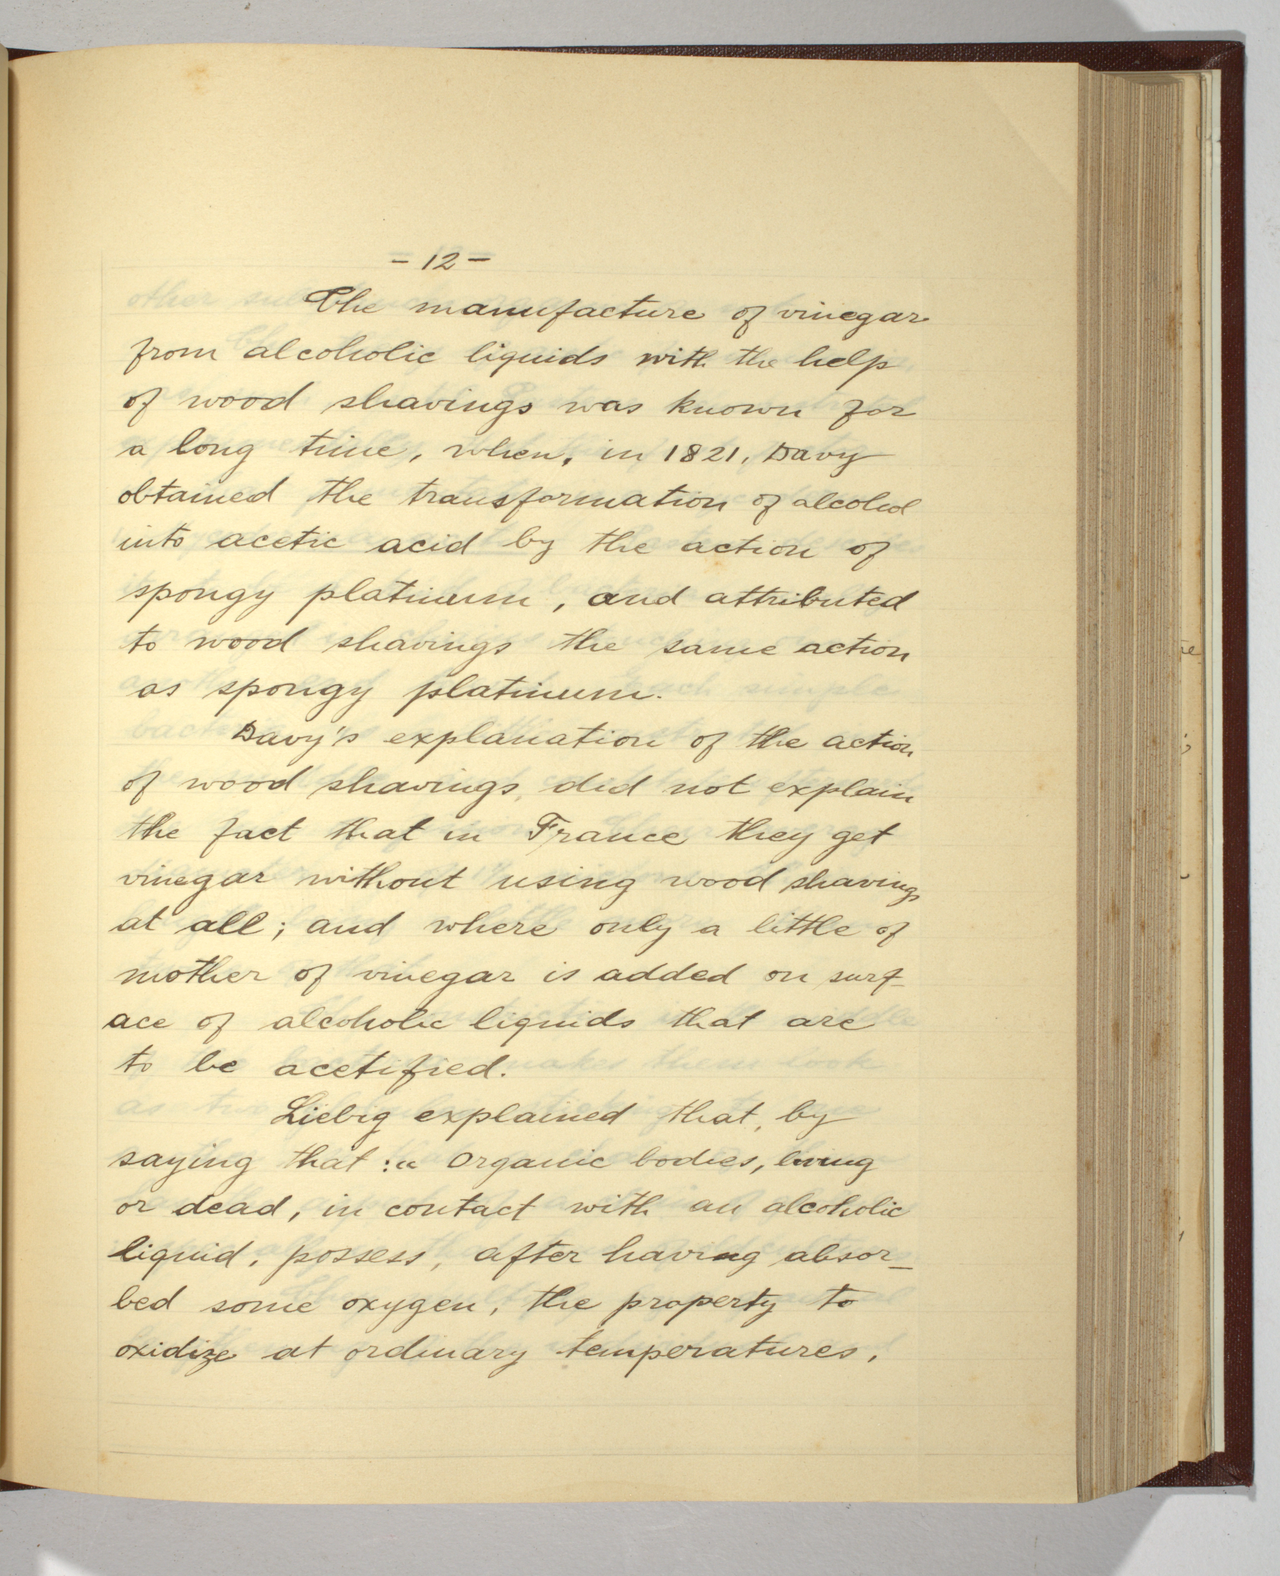 - 12 -
The manufacture of vinegar
from alcoholic liquids with the help
of wood shavings was known for
a long time, when, in 1821, Davy
obtained the transformation of alcohol
into acetic acid by the action of
spongy platinum, and attributed
to wood shavings the same action
as spongy platinum.
Davy's explanation of the action
of wood shavings, did not explain
the fact that in France they get
vinegar without using wood shavings
at all; and where only a little of
mother of vinegar is added on surf-
ace of alcoholic liquids that are
to be acetified.
Liebig explained that, by
saying that: " Organic bodies, living
or dead, in contact with an alcoholic
liquid, possess, after having absor-
bed some oxygen, the property to
oxidize at ordinary temperatures,